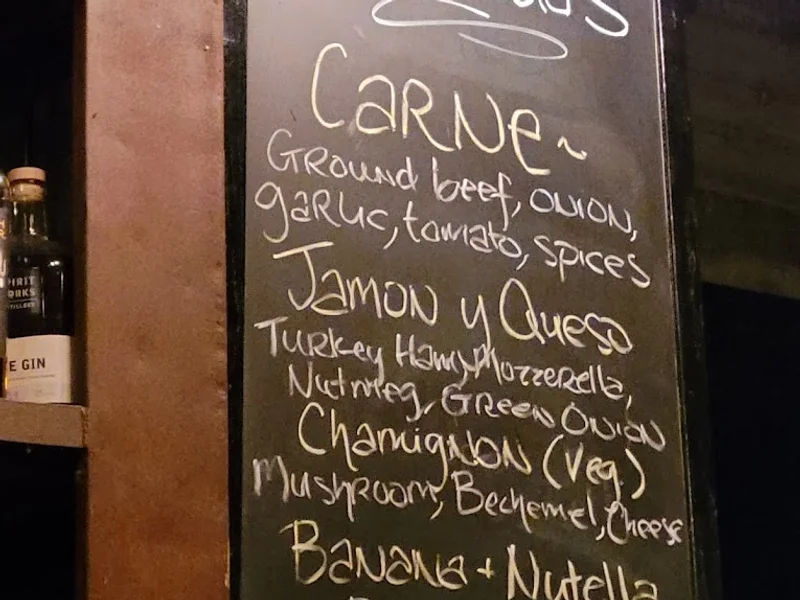 Carne~
Ground beef, onion,
garlic, tomato, spices
Jamon y Queso
Turkey Ham, Mozzerella,
Nutmeg, Green Onion
Chamignon (Veg.)
Mushroom, Bechemel, Cheese
Banana + Nutella
E GIN